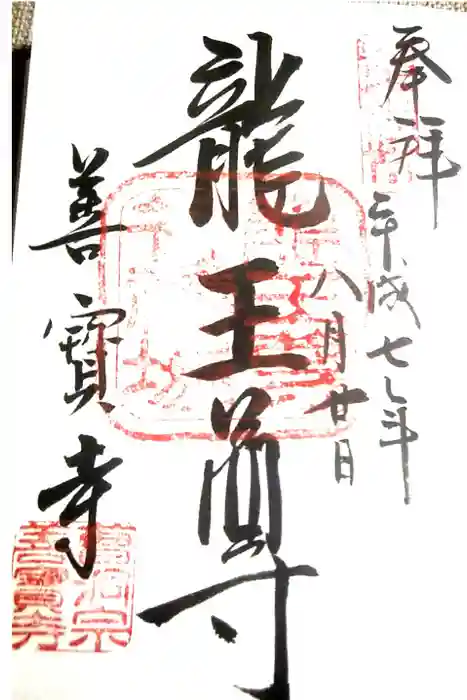 奉拝
平成七年
八月廿日
龍王尊
善寳寺
曹洞宗
善寳寺